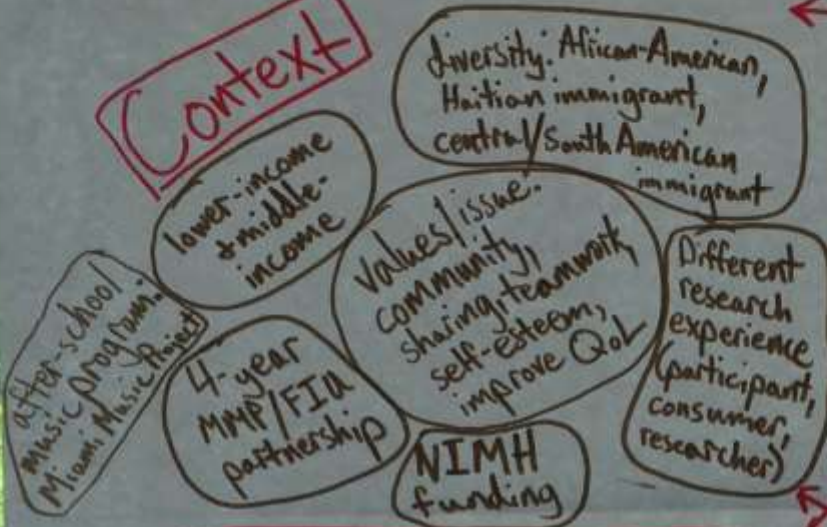 Context
diversity: African-American,
Haitian immigrant,
central/South American
immigrant
lower-income
+ middle-
income
values/issue:
community,
sharing, teamwork,
self-esteem,
improve QoL
Different
research
experience
(participant,
consumer,
researcher)
after-school
music program:
Miami Music Project
4-year
MMP/FIU
partnership
NIMH
funding